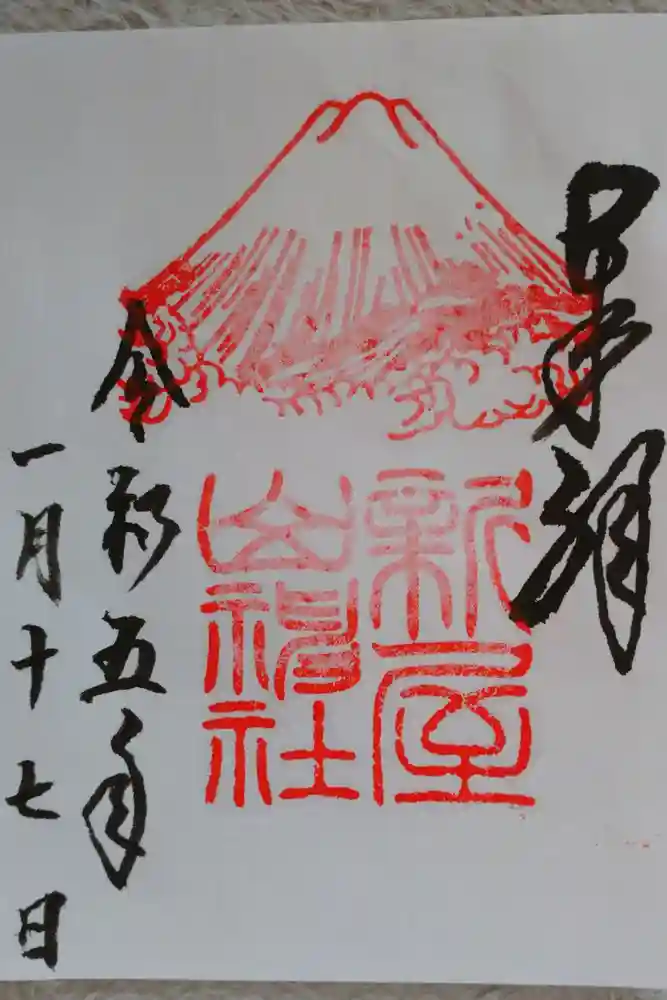 奉拝
新屋
山神社
令和五年
一月十七日